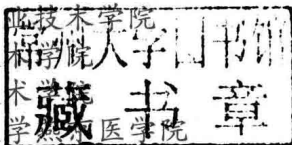 业技术学院
术学院
州大学图书馆
术学院
藏书章
学燕京医学院